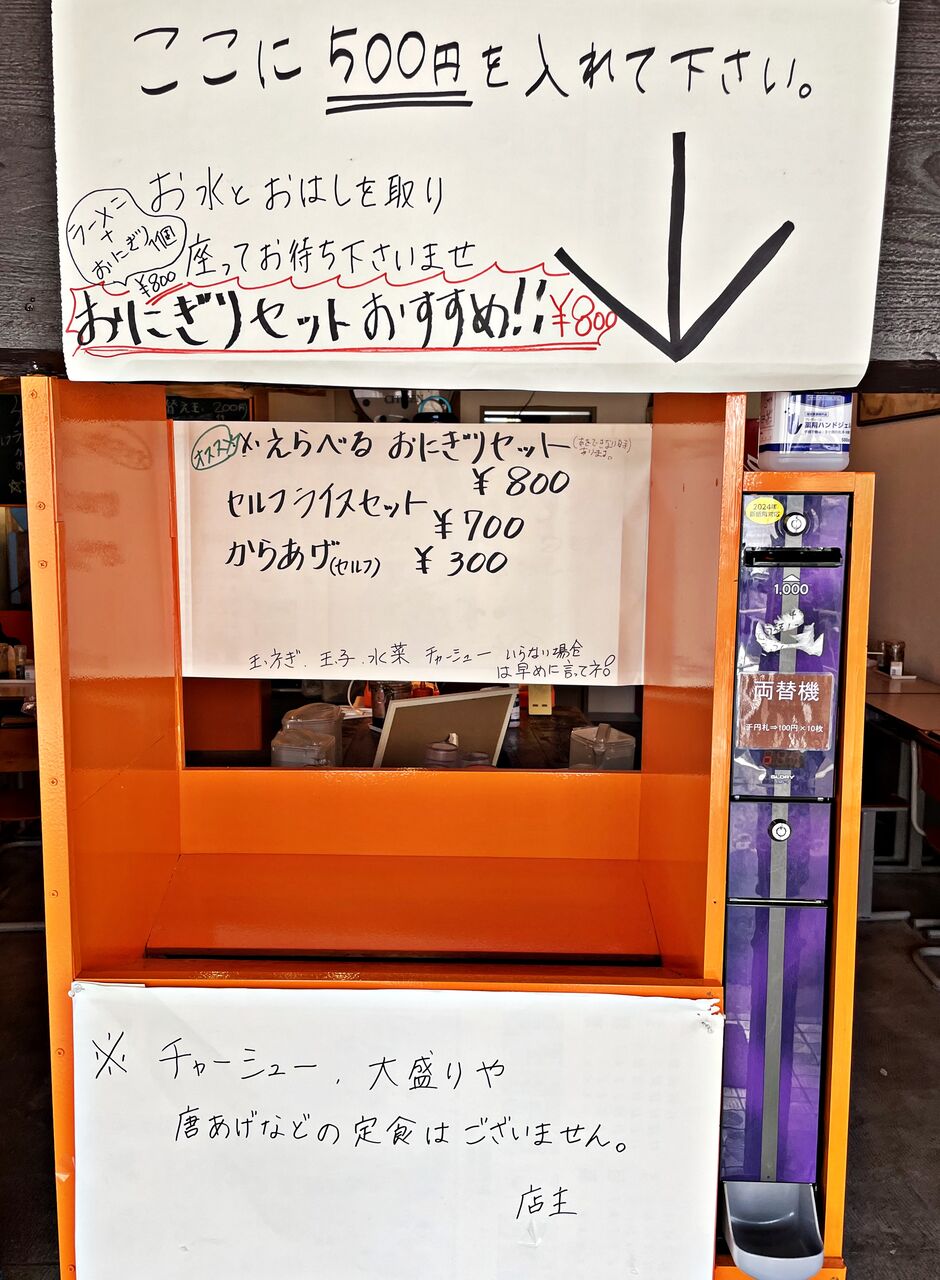 ここに500円を入れて下さい。
お水とおはしを取り
座ってお待ち下さいませ
ラーメン
+
おにぎり1個
¥800
おにぎりセットおすすめ!! ¥800
替え玉 200円
オススメ
※えらべる おにぎりセット
¥800
セルフライスセット
¥700
からあげ(セルフ) ¥300
玉ネギ、玉子、水菜 チャーシュー いらない場合
は早めに言ってネ!
薬用ハンドジェル
2024年
新紙幣対応
1,000
両替機
千円札⇒100円×10枚
GLORY
※ チャーシュー、大盛りや
唐あげなどの定食はございません。
店主